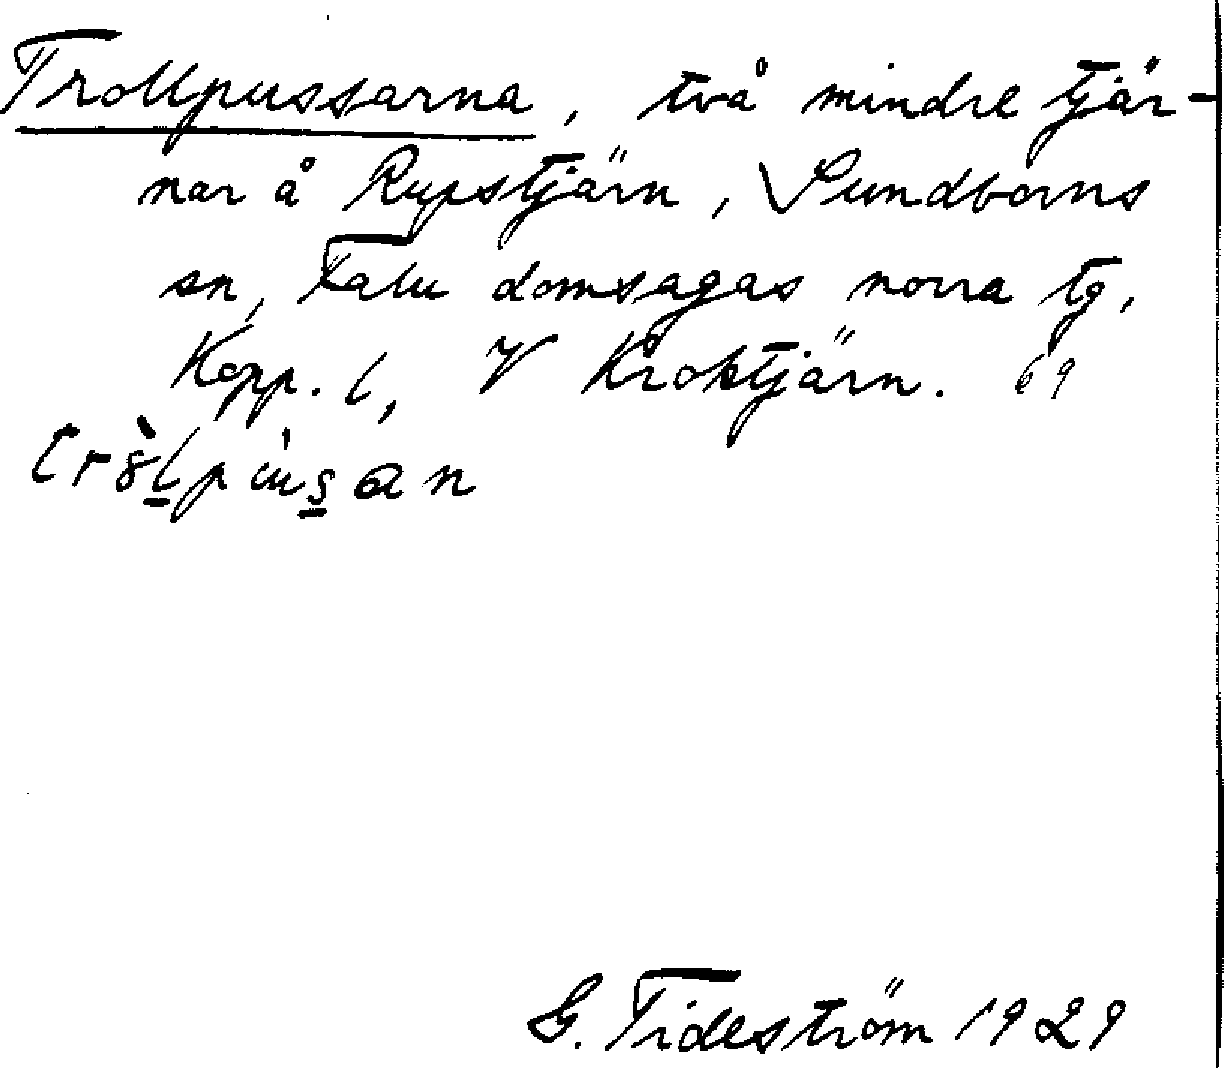 Trollpussarna, två mindre tjär-
nar å Rupstjärn, Sundborns
sn, Falu domsagas norra tg,
Kopp. l, V Kroktjärn. 69
G. Tideström 1929